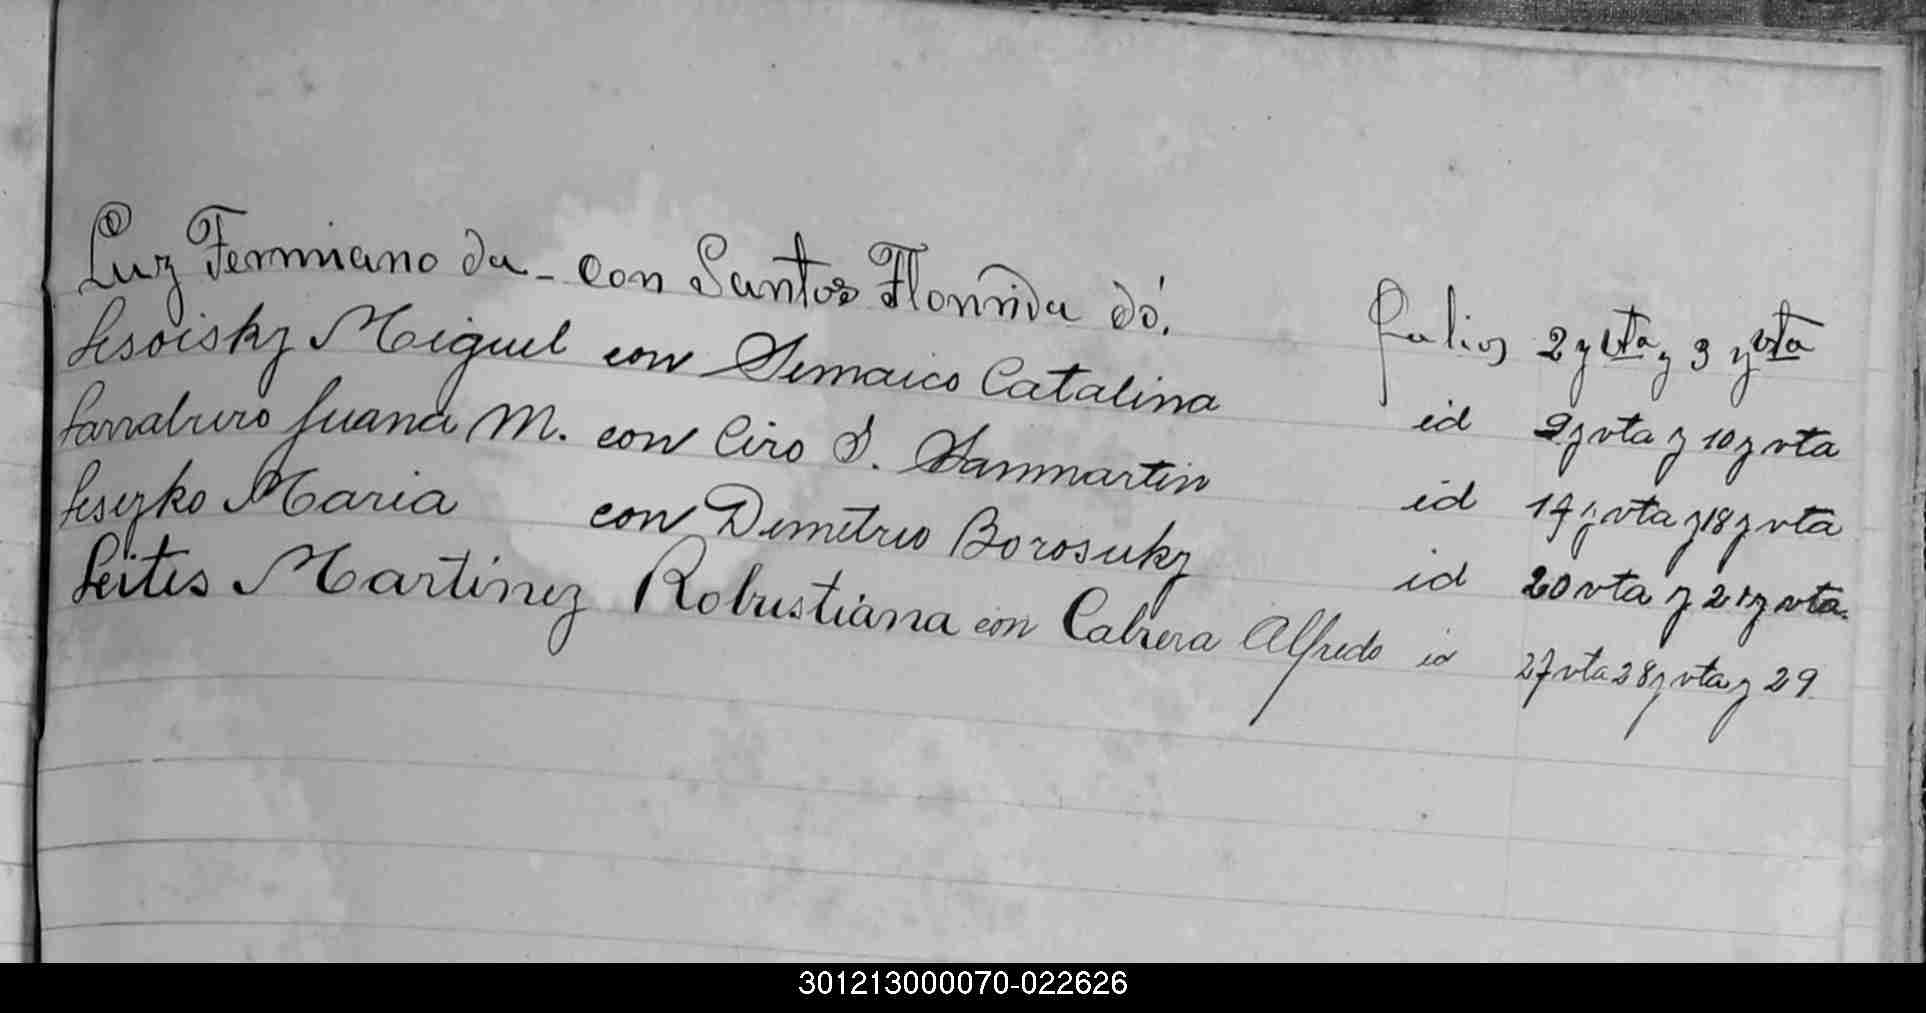 Luz Fermiano da - con Santos Florinda dó. folios 2 y vta y 3 y vta
Lesoisky Miguel con Semaico Catalina id 9 y vta y 10 y vta
Larraburo Juana M. con Ciro S. Sanmartin id 17 y vta y 18 y vta
Leszko Maria con Demetrio Borosuky id 20 vta y 21 y vta.
Leites Martinez Robustiana con Cabrera Alfredo id 27 vta 28 y vta y 29
301213000070-022626